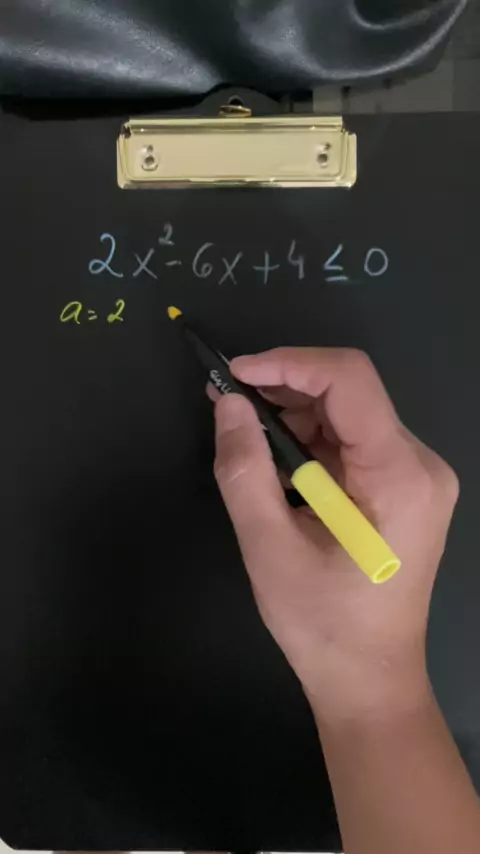 2x²-6x+4≤0
a=2